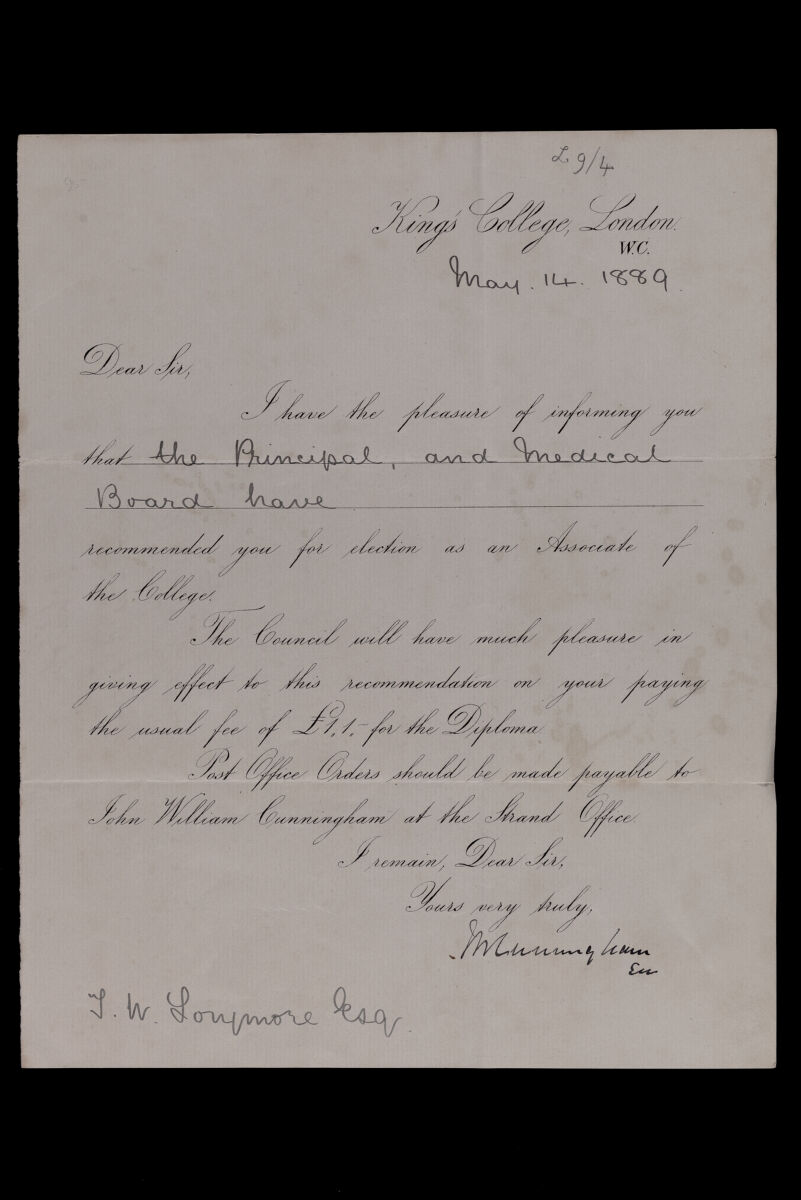 L 9/4
King's College, London.
W.C.
May. 14. 1889.
Dear Sir,
I have the pleasure of informing you
that the Principal, and Medical
Board have
recommended you for election as an Associate of
the College.
The Council will have much pleasure in
giving effect to this recommendation on your paying
the usual fee of £1,1.- for the Diploma.
Post Office Orders should be made payable to
John William Cunningham at the Strand Office.
I remain, Dear Sir,
Yours very truly,
Cunningham
W. Longmore Esq.